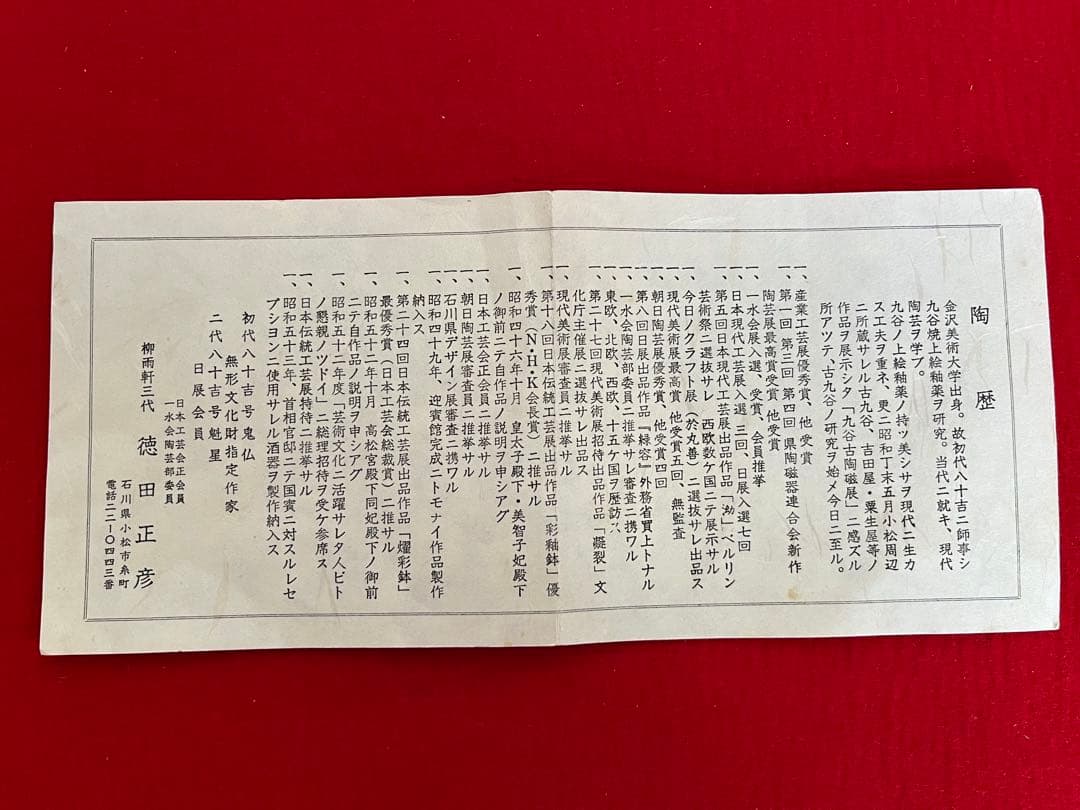 陶歴
金沢美術大学出身。故初代八十吉ニ師事シ
九谷焼上絵釉薬ヲ研究。当代ニ就キ、現代
陶芸ヲ学ブ。
九谷ノ上絵釉薬ノ持ツ美シサヲ現代ニ生カ
ス工夫ヲ重ネ、更ニ昭和丁末五月小松周辺
ニ所蔵サレル古九谷、吉田屋・粟生屋等ノ
作品ヲ展示シタ「九谷古陶磁展」ニ感ズル
所アツテ、古九谷ノ研究ヲ始メ今日ニ至ル。
一、産業工芸展優秀賞、他受賞
一、第一回 第三回 第四回 県陶磁器連合会新作
陶芸展最高賞受賞 他受賞
一、一水会展入選、受賞、会員推挙
一、日本現代工芸展入選 三回、日展入選七回
一、第五回日本現代工芸展出品作品「泑」ベルリン
芸術祭ニ選抜サレ 西欧数ケ国ニテ展示サル
一、今日ノクラフト展（於丸善）ニ選抜サレ出品ス
一、現代美術展最高賞 他受賞五回、無監査
一、朝日陶芸展優秀賞、他受賞四回
一、第八回日展出品作品『緑容』外務省買上トナル
一、一水会陶芸部委員ニ推挙サレ審査ニ携ワル
一、東欧、北欧、西欧、十五ケ国ヲ歴訪ス
一、第二十七回現代美術展招待出品作品「凝裂」文
化庁主催展ニ選抜サレ出品ス
一、現代美術展審査員ニ推挙サル
一、第十八回日本伝統工芸展出品作品「彩釉鉢」優
秀賞（N・H・K会長賞）ニ推サル
一、昭和四十六年十月、皇太子殿下・美智子妃殿下
ノ御前ニテ自作品ノ説明ヲ申シアグ
一、日本工芸会正会員ニ推挙サル
一、朝日陶芸展審査員ニ推挙サル
一、石川県デザイン展審査ニ携ワル
一、昭和四十九年、迎賓館完成ニトモナイ作品製作
納入ス
一、第二十四回日本伝統工芸展出品作品「燿彩鉢」
最優秀賞（日本工芸会総裁賞）ニ推サル
一、昭和五十二年十月 高松宮殿下同妃殿下ノ御前
ニテ自作品ノ説明ヲ申シアグ
一、昭和五十二年度「芸術文化ニ活躍サレタ人ビト
ノ懇親ノツドイ」ニ総理招待ヲ受ケ参席ス
一、日本伝統工芸展特待ニ推挙サル
一、昭和五十三年、首相官邸ニテ国賓ニ対スルレセ
プシヨンニ使用サレル酒器ヲ製作納入ス
初代八十吉号鬼仏
無形文化財指定作家
二代八十吉号魁星
日展会員
日本工芸会正会員
一水会陶芸部委員
柳雨軒三代 徳田正彦
石川県小松市糸町
電話二二-〇四四三番